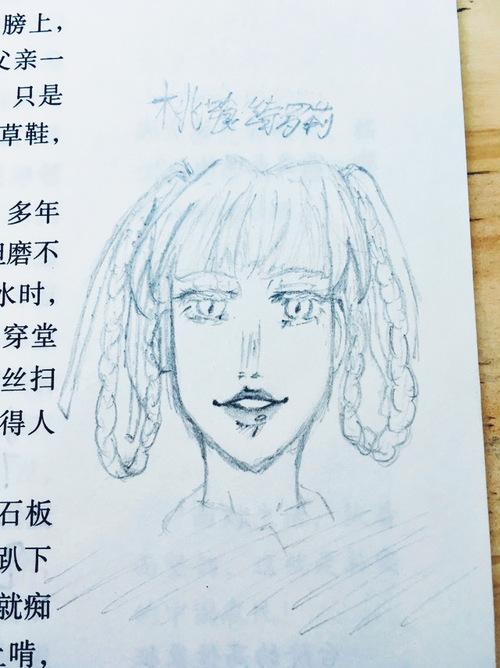 膀上，
父亲一
只是
草鞋，
多年
磨不
水时，
穿堂
丝扫
得人
石板
趴下
就痴
啃，
桃喰绮罗莉